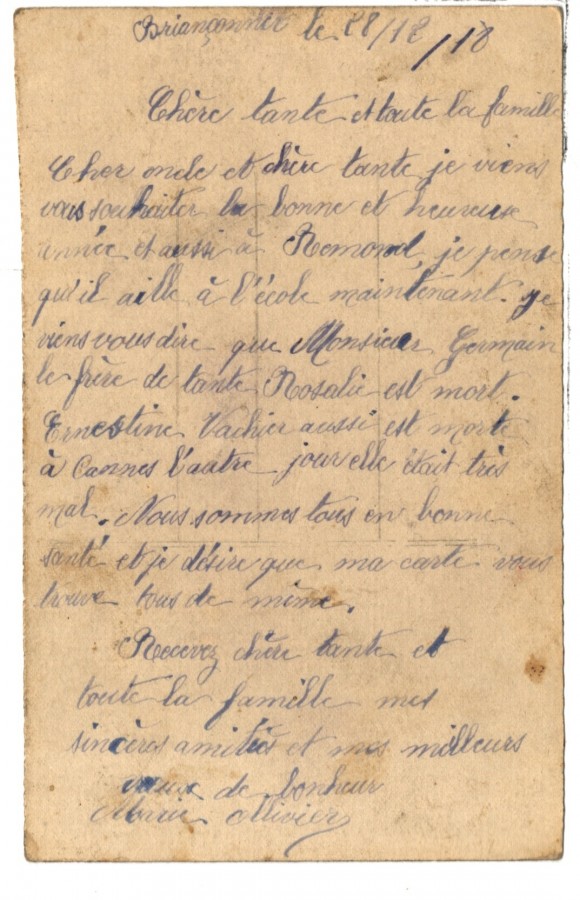 Briançonnet le 28/12/18
Chère tante et toute la famille
Cher oncle et chère tante je viens
vous souhaiter la bonne et heureuse
année et aussi à Remond, je pense
qu'il aille à l'école maintenant. je
viens vous dire que Monsieur Germain
le frère de tante Rosalie est mort.
Ernestine Vachier aussi est morte
à Cannes l'autre jour elle était très
mal. Nous sommes tous en bonne
santé et je désire que ma carte vous
trouve tous de même.
Recevez chère tante et
toute la famille mes
sincères amitiés et mes milleurs
de bonheur
Marie Ollivier